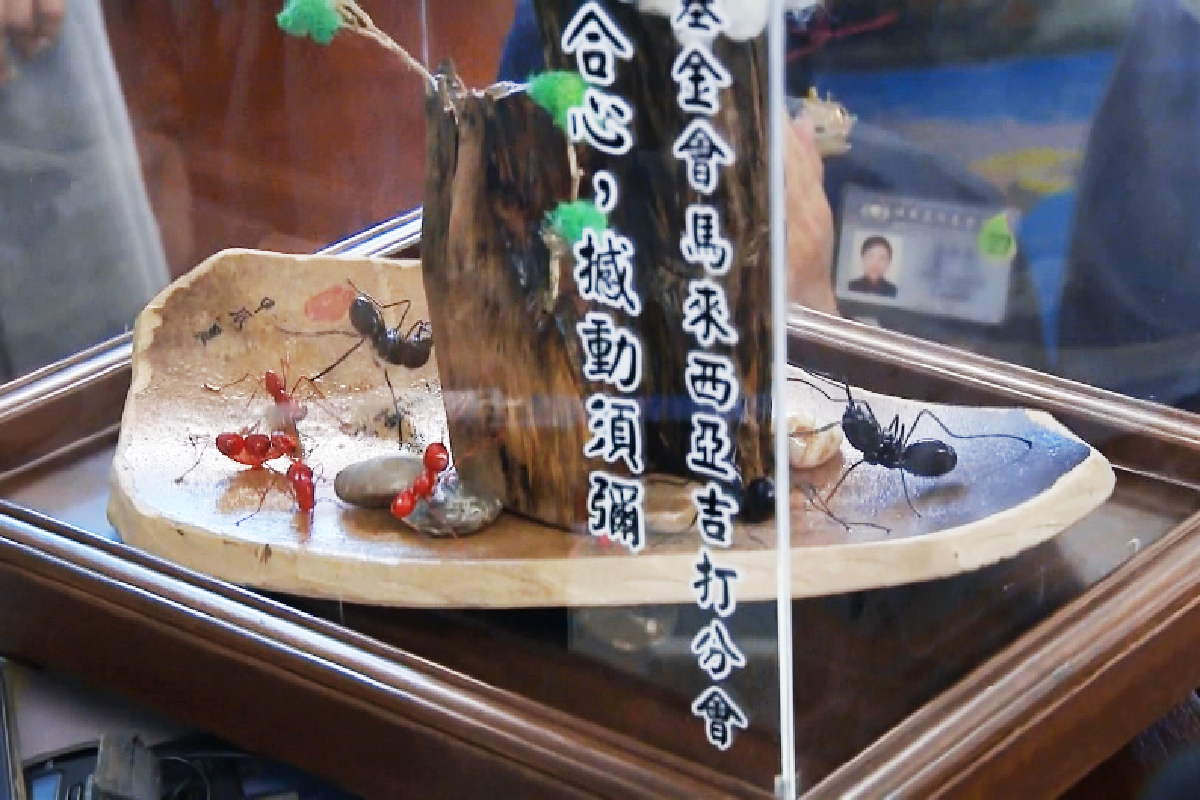 基金會馬來西亞吉打分會
合心，撼動須彌